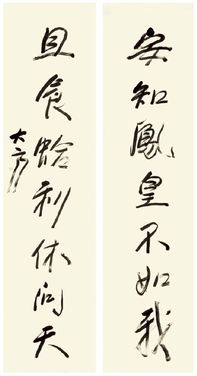 安知鳳皇不如我
且食蛤利休問天
大